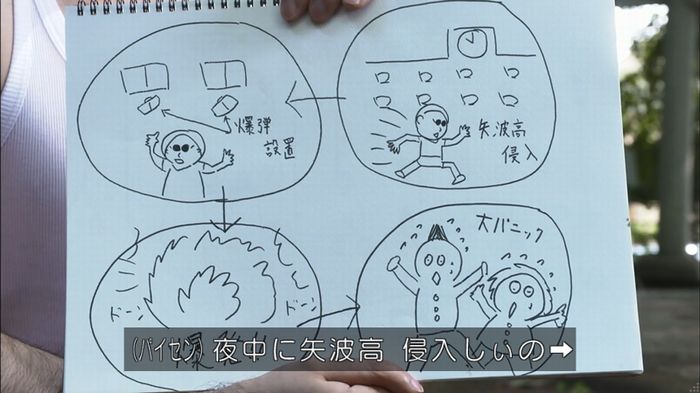 矢波高
侵入
爆弾
設置
ドーン
ドーン
爆発
大パニック
(パイセン) 夜中に矢波高 侵入しぃの➡